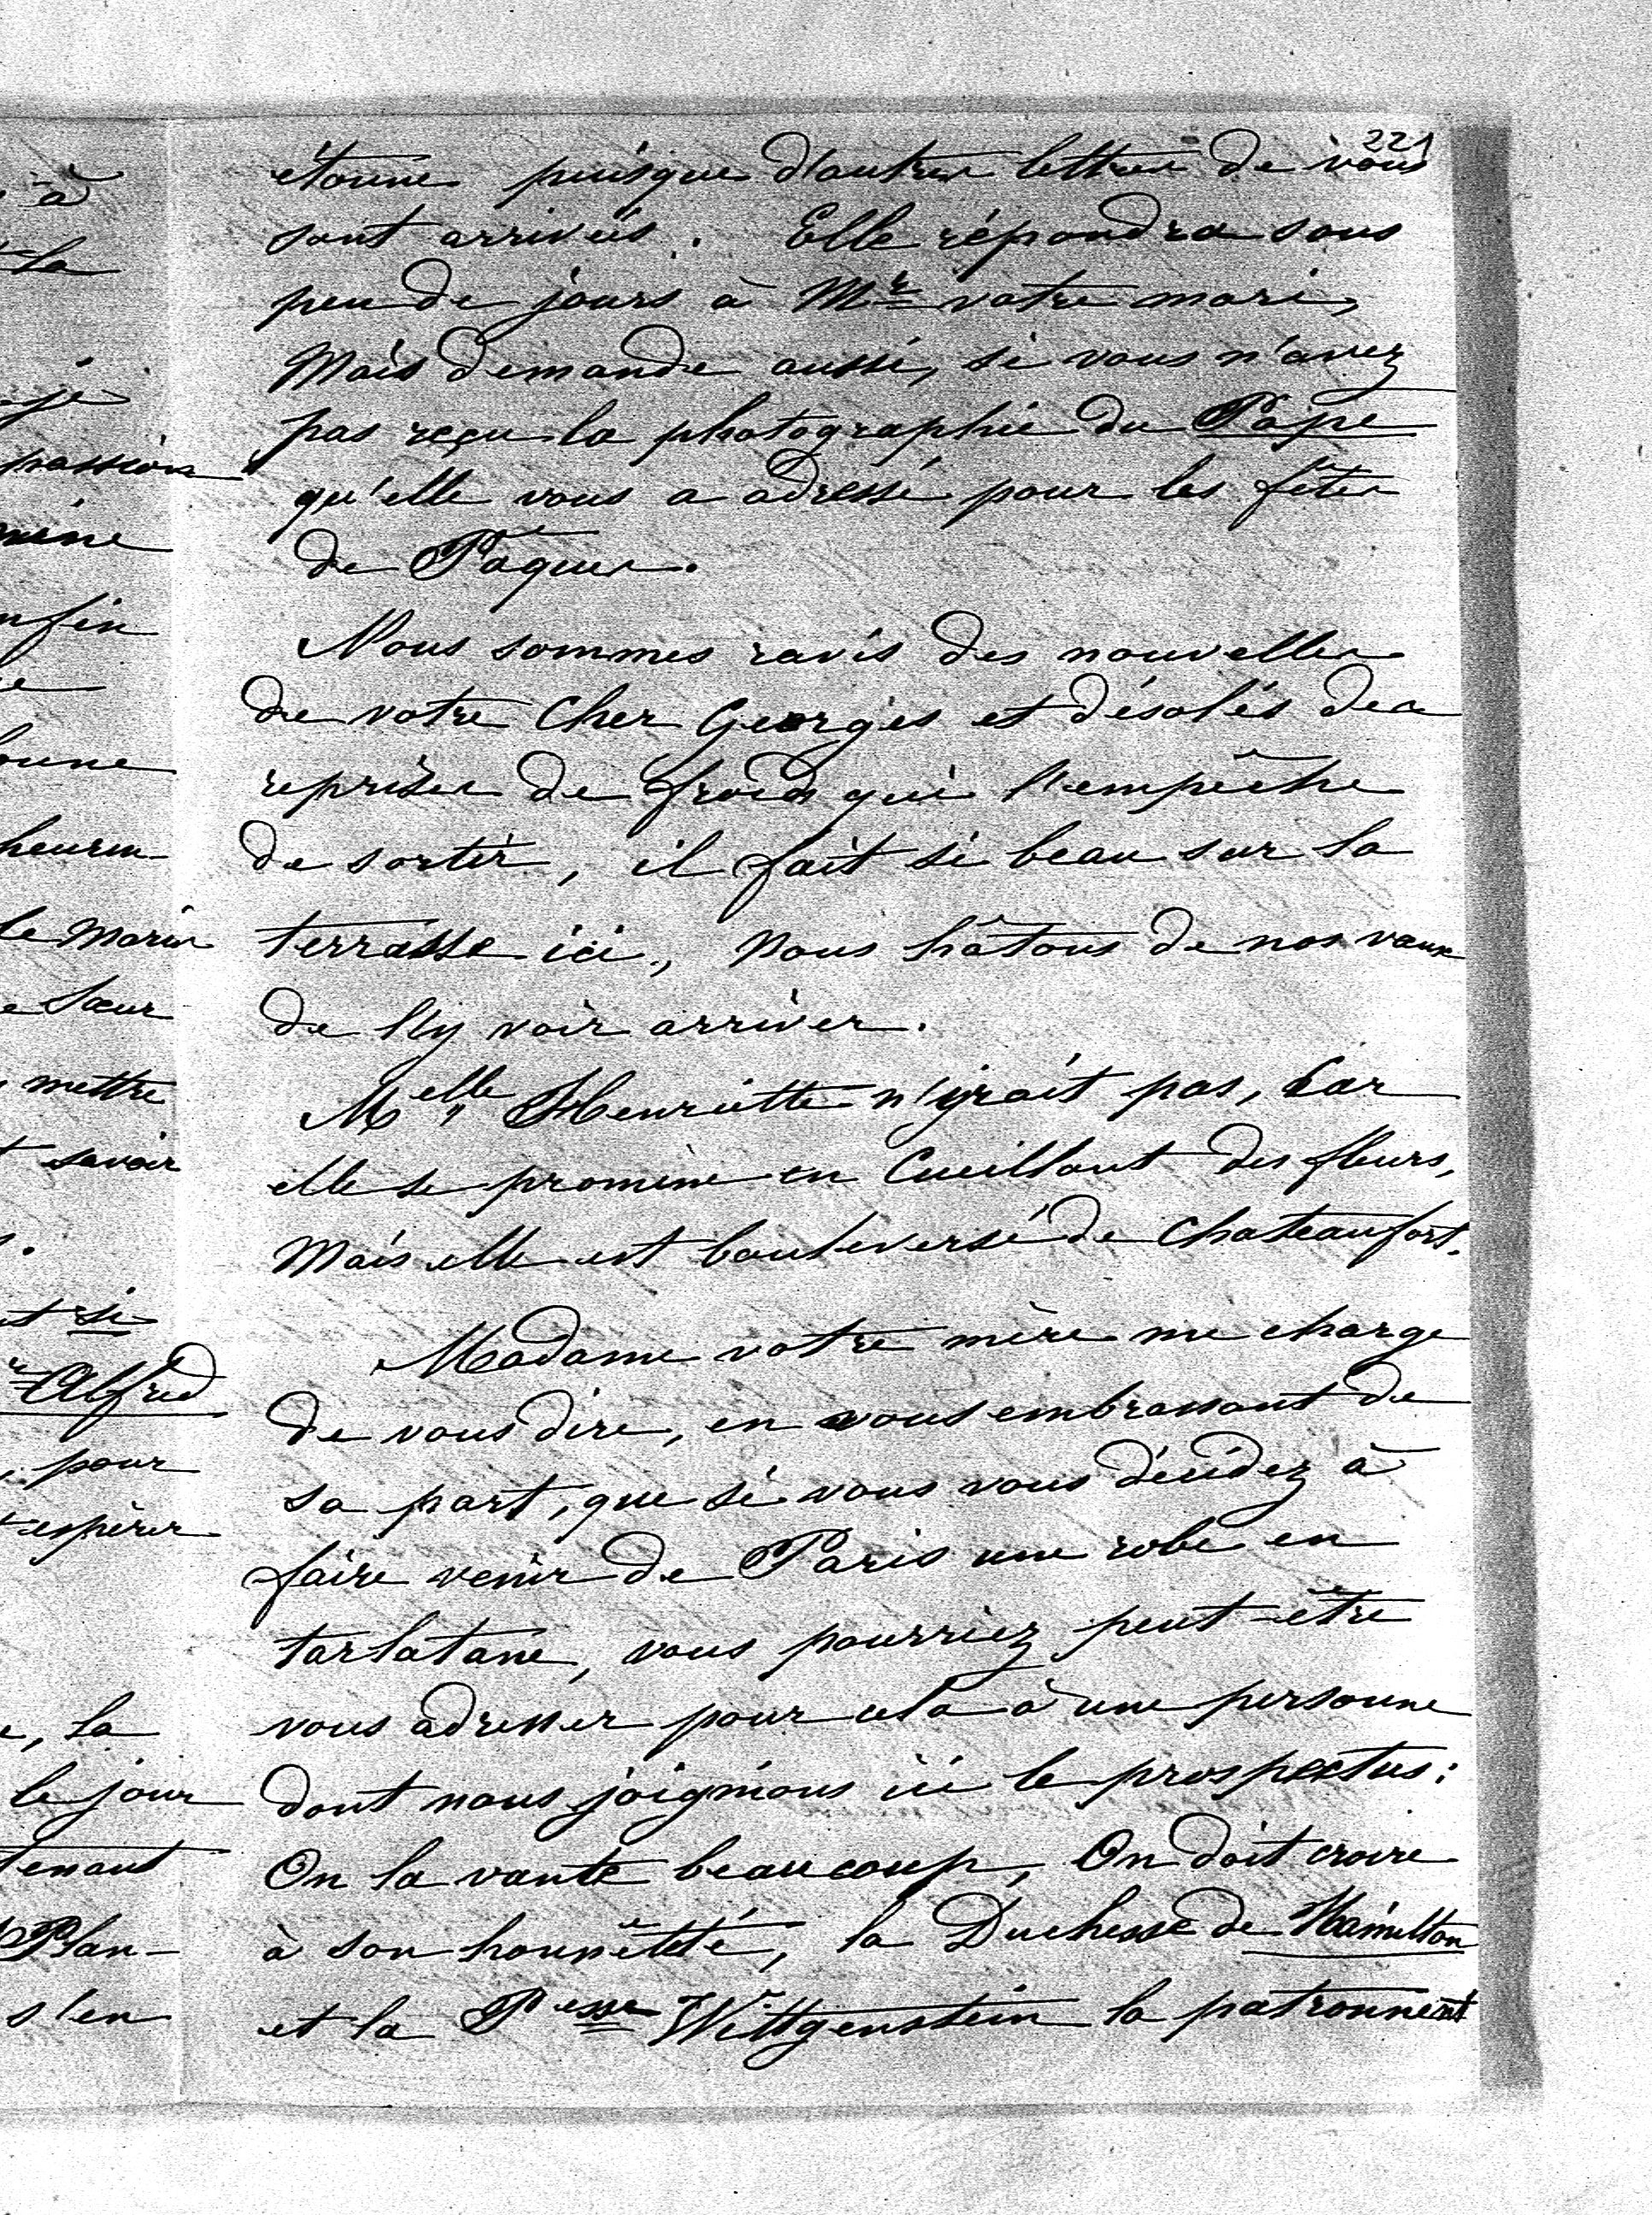 221
étonne puisque d'autres lettres de vous
sont arrivées. Elle répondra sous
peu de jours à Mr votre mari,
Mais demande aussi, si vous n'avez
pas reçu la photographie du Pape
qu'elle vous a adressé pour les fêtes
de Pâques.
Nous sommes ravis des nouvelles
de votre Cher Georges et désolés des
reprises de froid qui l'empêche
de sortir, il fait si beau sur la
terrasse ici, Nous hâtons de nos vœux
de l'y voir arriver.
Melle Henriette n'irait pas, Car
elle se promène en Cueillant des fleurs,
Mais elle est bouleversé de Chateaufort.
Madame votre mère me charge
de vous dire, en vous embrassant de
sa part, que si vous vous décidez à
faire venir de Paris une robe en
tarlatane, vous pourriez peut-être
vous adresser pour cela à une personne
dont nous joignions ici le prospectus:
On la vante beaucoup, On doit croire
à son honnêteté, la Duchesse de Hamilton
et la Pesse Wittgenstein la patronnent
à
la
je
passion
enfin
heureu-
le Marin
Sœur
mettre
savoir
si
Alfred
pour
espérer
, la
le jour
tenant
Plan-
s'en